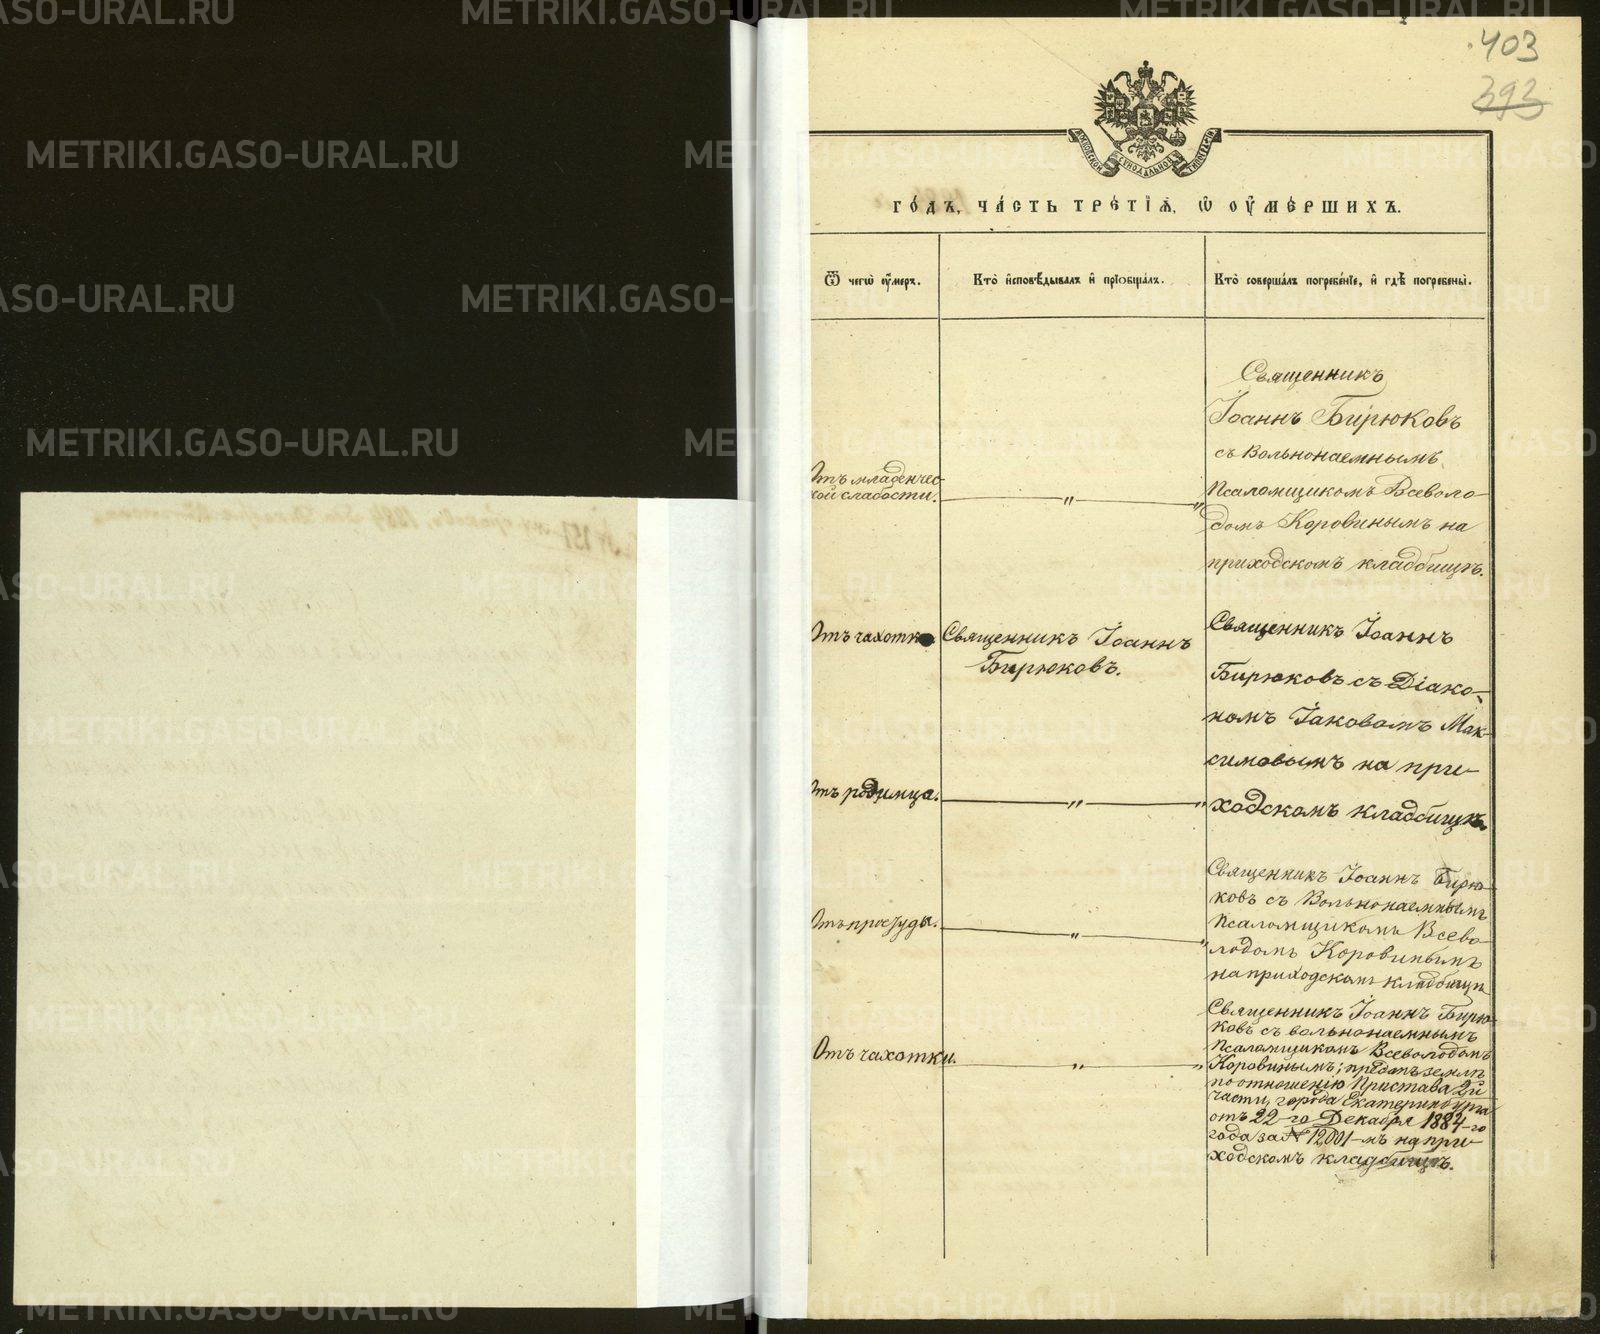 403
393
МОСКОВСКОЙ СѴНОДАЛЬНОЙ ТИПОГРАФІИ
го́дъ, ча́сть тре́тїѧ, ѡ҆ ᲂу҆ме́ршихъ.
Ѿ чегѡ̀ ᲂу҆́меръ.
Кто̀ и҆сповѣ́дывалъ и҆ прїѻбща́лъ.
Кто̀ соверша́лъ погребе́нїе, и҆ гдѣ̀ погребены̀.
Отъ младенчес-
кой слабости.
"
"
Священникъ
Іоаннъ Бирюковъ
съ Вольнонаемнымъ
Псаломщикомъ Всеволо-
домъ Коровинымъ на
приходскомъ кладбищѣ.
Отъ чахотки
Священникъ Іоаннъ
Бирюковъ.
Священникъ Іоаннъ
Бирюковъ съ Діако-
номъ Іаковомъ Мак-
симовымъ на при-
ходскомъ кладбищѣ.
Отъ родимца.
"
"
Отъ простуды.
"
"
Священникъ Іоаннъ Бирю-
ковъ съ Вольнонаемнымъ
Псаломщикомъ Всево-
лодомъ Коровинымъ
на приходскомъ кладбищѣ
Отъ чахотки.
"
"
Священникъ Іоаннъ Бирю-
ковъ съ вольнонаемнымъ
Псаломщикомъ Всеволодомъ
Коровинымъ; преданъ землѣ
по отношенію Пристава 2й
части, города Екатеринбурга
отъ 22-го Декабря 1884-го
года за № 12001-мъ на при-
ходскомъ кладбищѣ.
METRIKI.GASO-URAL.RU